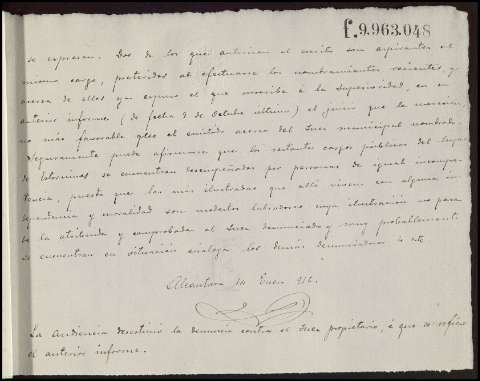 F.9.963.048
se expresan. Dos de los que autorizan el escrito son aspirantes al
mismo cargo, preteridos al efectuarse los nombramientos recientes, y
acerca de ellos ya expuso el que suscribe á la Superioridad, en su
anterior informe (de fecha 9 de Octubre último) el juicio que le merecían,
no más favorable que el emitido acerca del Juez municipal nombrado.
Seguramente puede afirmarse que los restantes cargos públicos del lugar
de se encuentran desempeñados por personas de igual incompe-
tencia, puesto que las más ilustradas que allí viven con alguna in-
dependencia y moralidad son modestos labradores cuya ilustración no pasa
de la atribuida y comprobada al Juez denunciado y muy probablemente
se encuentran en situación análoga los demás denunciadores
Alcántara 14 Enero 912.
La Audiencia desestimó la denuncia contra el Juez propietario, á que se refiere
el anterior informe.